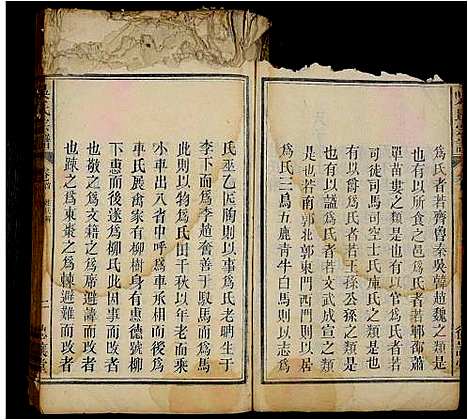 爲氏者若齊魯秦吳韓趙魏之類
也有以所食之邑爲氏者若鄆郈蕭
單苗樊之類是也有以官爲氏者若
司徒司馬司空士氏庫氏之類是也
有以爵爲氏者若王孫公孫之類是
也有以謚爲氏者若文武成宣之類
也若南郭北郭東門西門則以居
爲氏三烏五鹿青牛白馬則以志爲
氏巫乙匠陶則以事爲氏老聃生于
李下而爲李趙奢善于馭馬而爲馬
此則以物爲氏田千秋以年老以
小車出入省中呼爲車丞相而爲
車氏展禽家有柳樹身有惠德號柳
下惠而後遂爲柳氏此因事而改者
也敬之爲文爲恭避諱而改者
也踈之爲東棗之爲棘避難而改者
吳氏宗譜